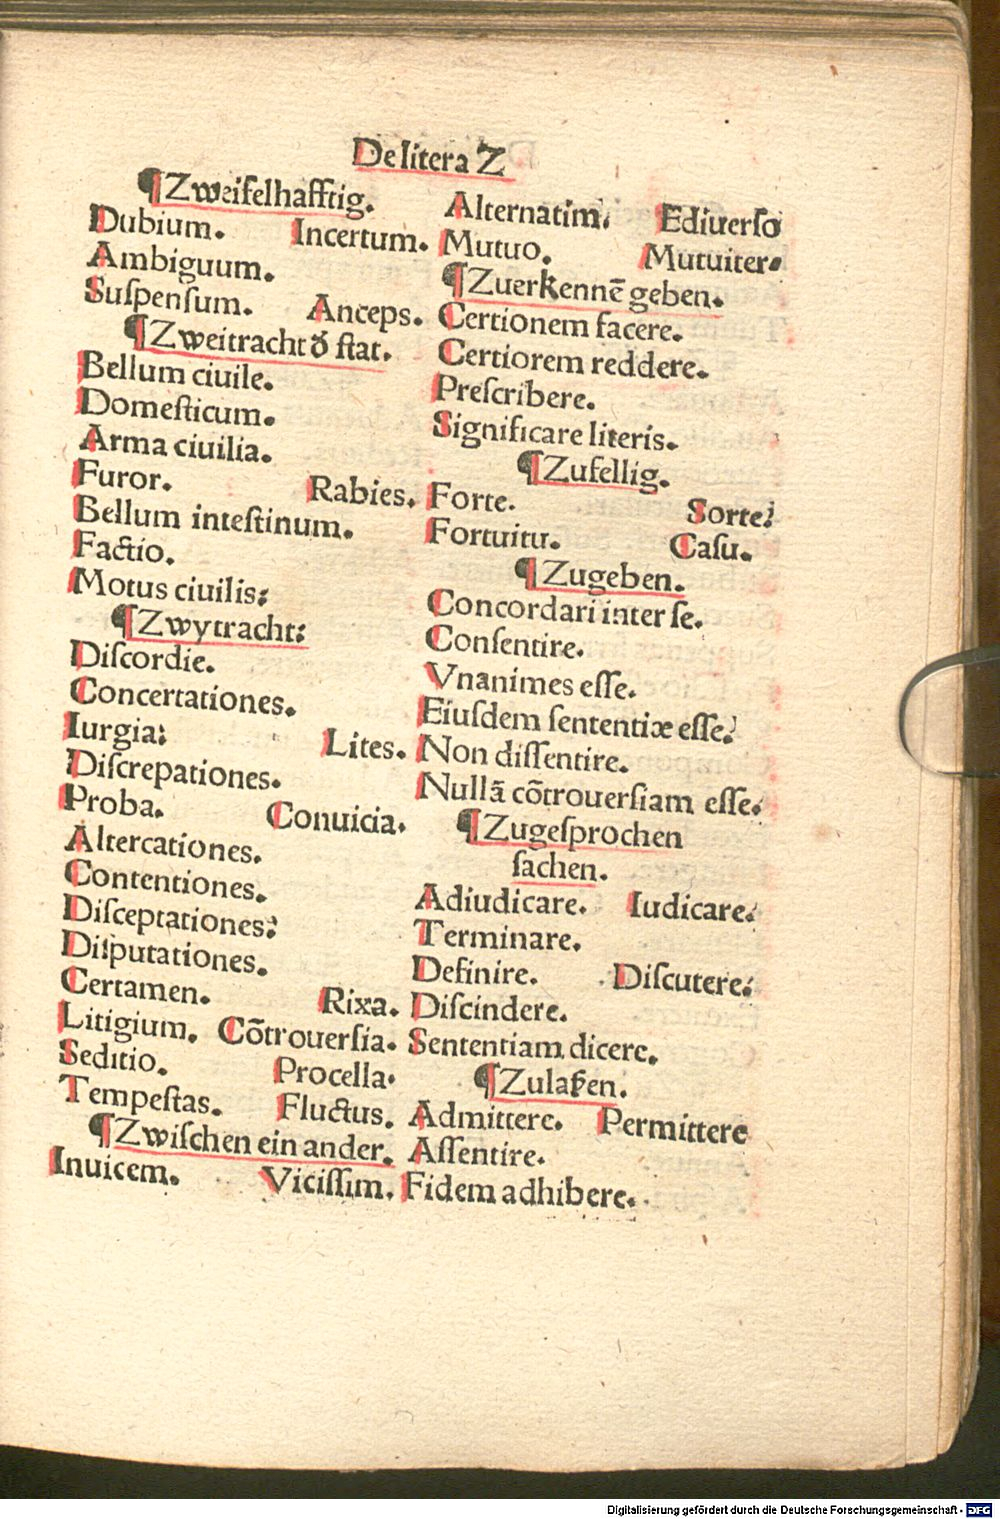 De litera Z
¶Zweifelhafftig.
Dubium. Incertum.
Ambiguum.
Suſpenſum. Anceps.
¶Zweitracht ð ſtat.
Bellum ciuile.
Domeſticum.
Arma ciuilia.
Furor. Rabies.
Bellum inteſtinum.
Factio.
Motus ciuilis:
¶Zwytracht:
Diſcordie.
Concertationes.
Iurgia: Lites.
Diſcrepationes.
Proba. Conuicia.
Altercationes.
Contentiones.
Diſceptationes:
Diſputationes.
Certamen. Rixa.
Litigium. Cõtrouerſia.
Seditio. Procella.
Tempeſtas. Fluctus.
¶Zwiſchen ein ander.
Inuicem. Viciſſim.
Alternatim. Ediuerſo
Mutuo. Mutuiter.
¶Zuerkennẽ geben.
Certionem facere.
Certiorem reddere.
Preſcribere.
Significare literis.
¶Zufellig.
Forte. Sorte.
Fortuitu. Caſu.
¶Zugeben.
Concordari inter ſe.
Conſentire.
Vnanimes eſſe.
Eiuſdem ſententiæ eſſe.
Non diſſentire.
Nullã cõtrouerſiam eſſe.
¶Zugeſprochen
ſachen.
Adiudicare. Iudicare.
Terminare.
Definire. Diſcutere.
Diſcindere.
Sententiam dicere.
¶Zulaßen.
Admittere. Permittere
Aſſentire.
Fidem adhibere.
Digitalisierung gefördert durch die Deutsche Forschungsgemeinschaft - DFG